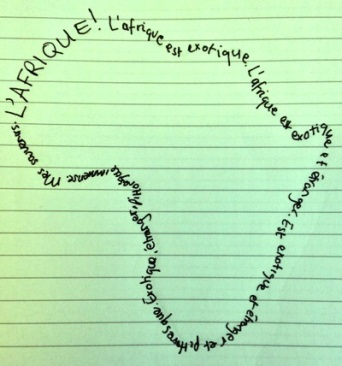 L'AFRIQUE! L'afrique est exotique. L'afrique est exotique et étranger. Est exotique et étranger et pittoresque. Exotique, étranger, immense. Mes souvenirs.